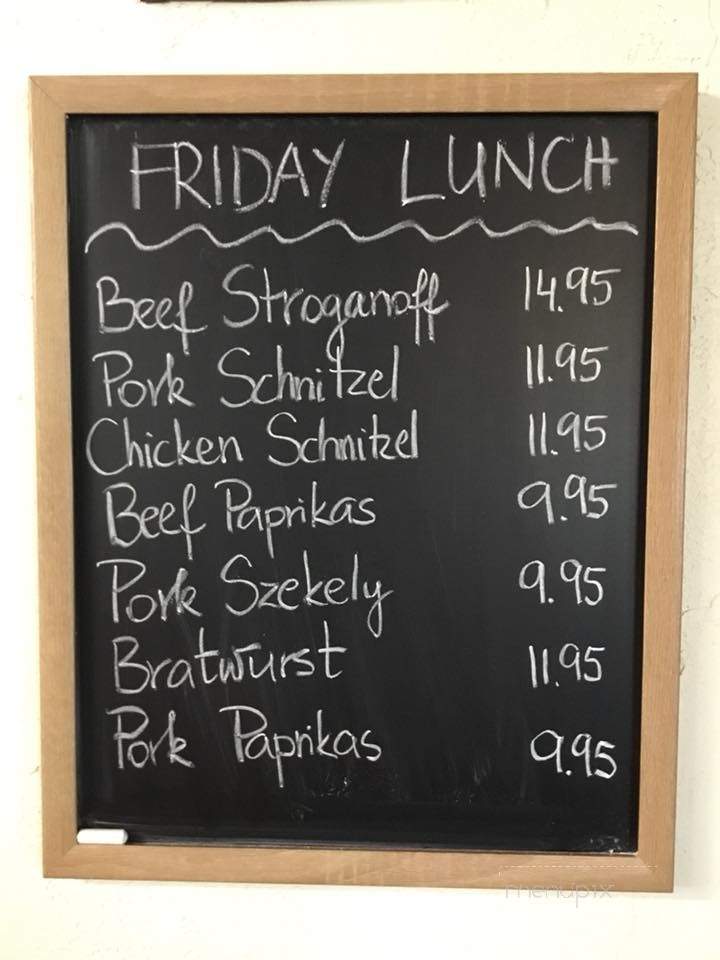 FRIDAY LUNCH
Beef Stroganoff 14.95
Pork Schnitzel 11.95
Chicken Schnitzel 11.95
Beef Paprikas 9.95
Pork Szekely 9.95
Bratwurst 11.95
Pork Paprikas 9.95
menupix